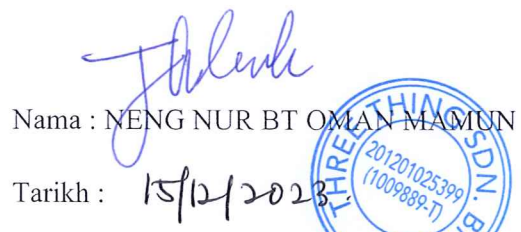 Nama : NENG NUR BT OMAN MAMUN
Tarikh : 15/12/2023.
THREE THING SDN. B
201201025399
(1009889-T)